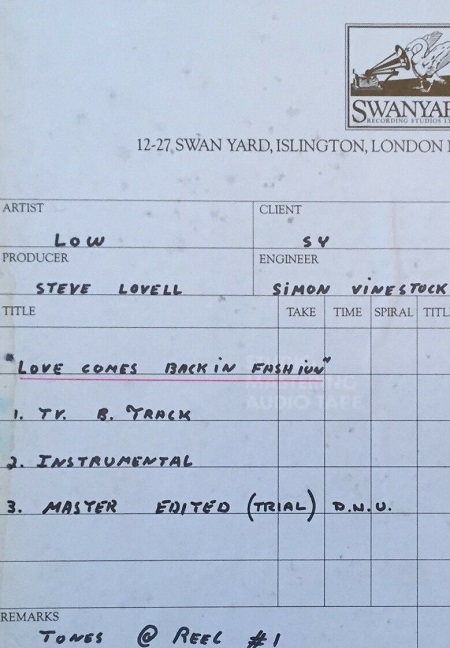 SWANYAR
RECORDING STUDIOS
12-27, SWAN YARD, ISLINGTON, LONDON
ARTIST CLIENT
LOW SY
PRODUCER ENGINEER
STEVE LOVELL SIMON VINESTOCK
TITLE TAKE TIME SPIRAL TITL
"LOVE COMES BACK IN FASHION"
MASTERING
AUDIO TAPE
1. TV. B. TRACK
2. INSTRUMENTAL
3. MASTER EDITED (TRIAL) D.N.U.
REMARKS
TONES @ REEL #1